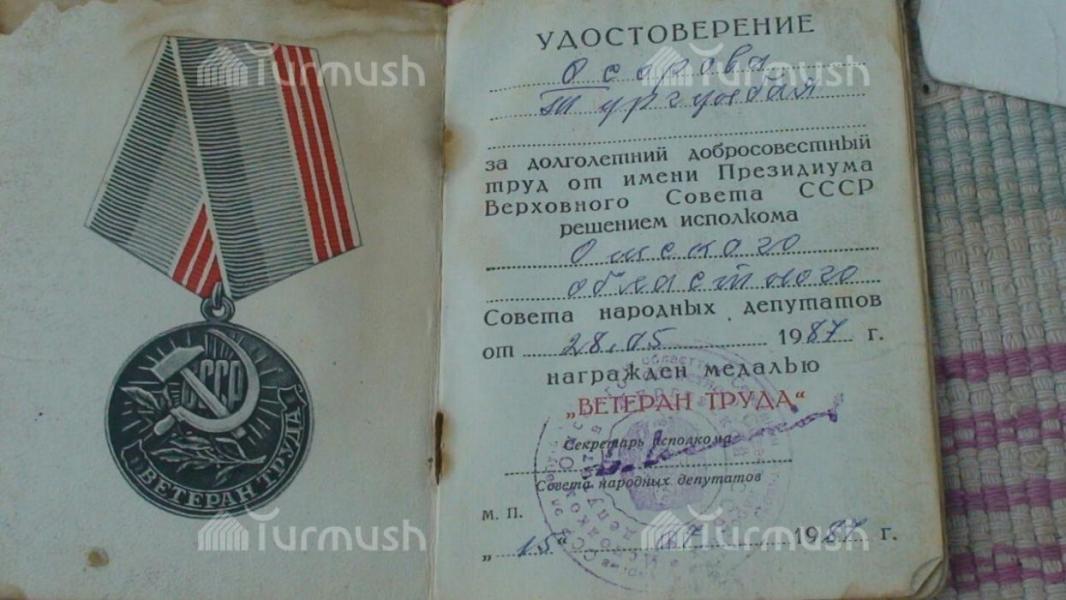 СССР
ВЕТЕРАН ТРУДА
УДОСТОВЕРЕНИЕ
Осарова
Тургунбая
за долголетний добросовестный
труд от имени Президиума
Верховного Совета СССР
решением исполкома
Ошского
областного
Совета народных депутатов
от 28.05 1987 г.
награжден медалью
„ВЕТЕРАН ТРУДА“
Секретарь исполкома
Совета народных депутатов
М. П.
„15“ 07 1987 г.
Turmush
Turmush
Turmush
Turmush